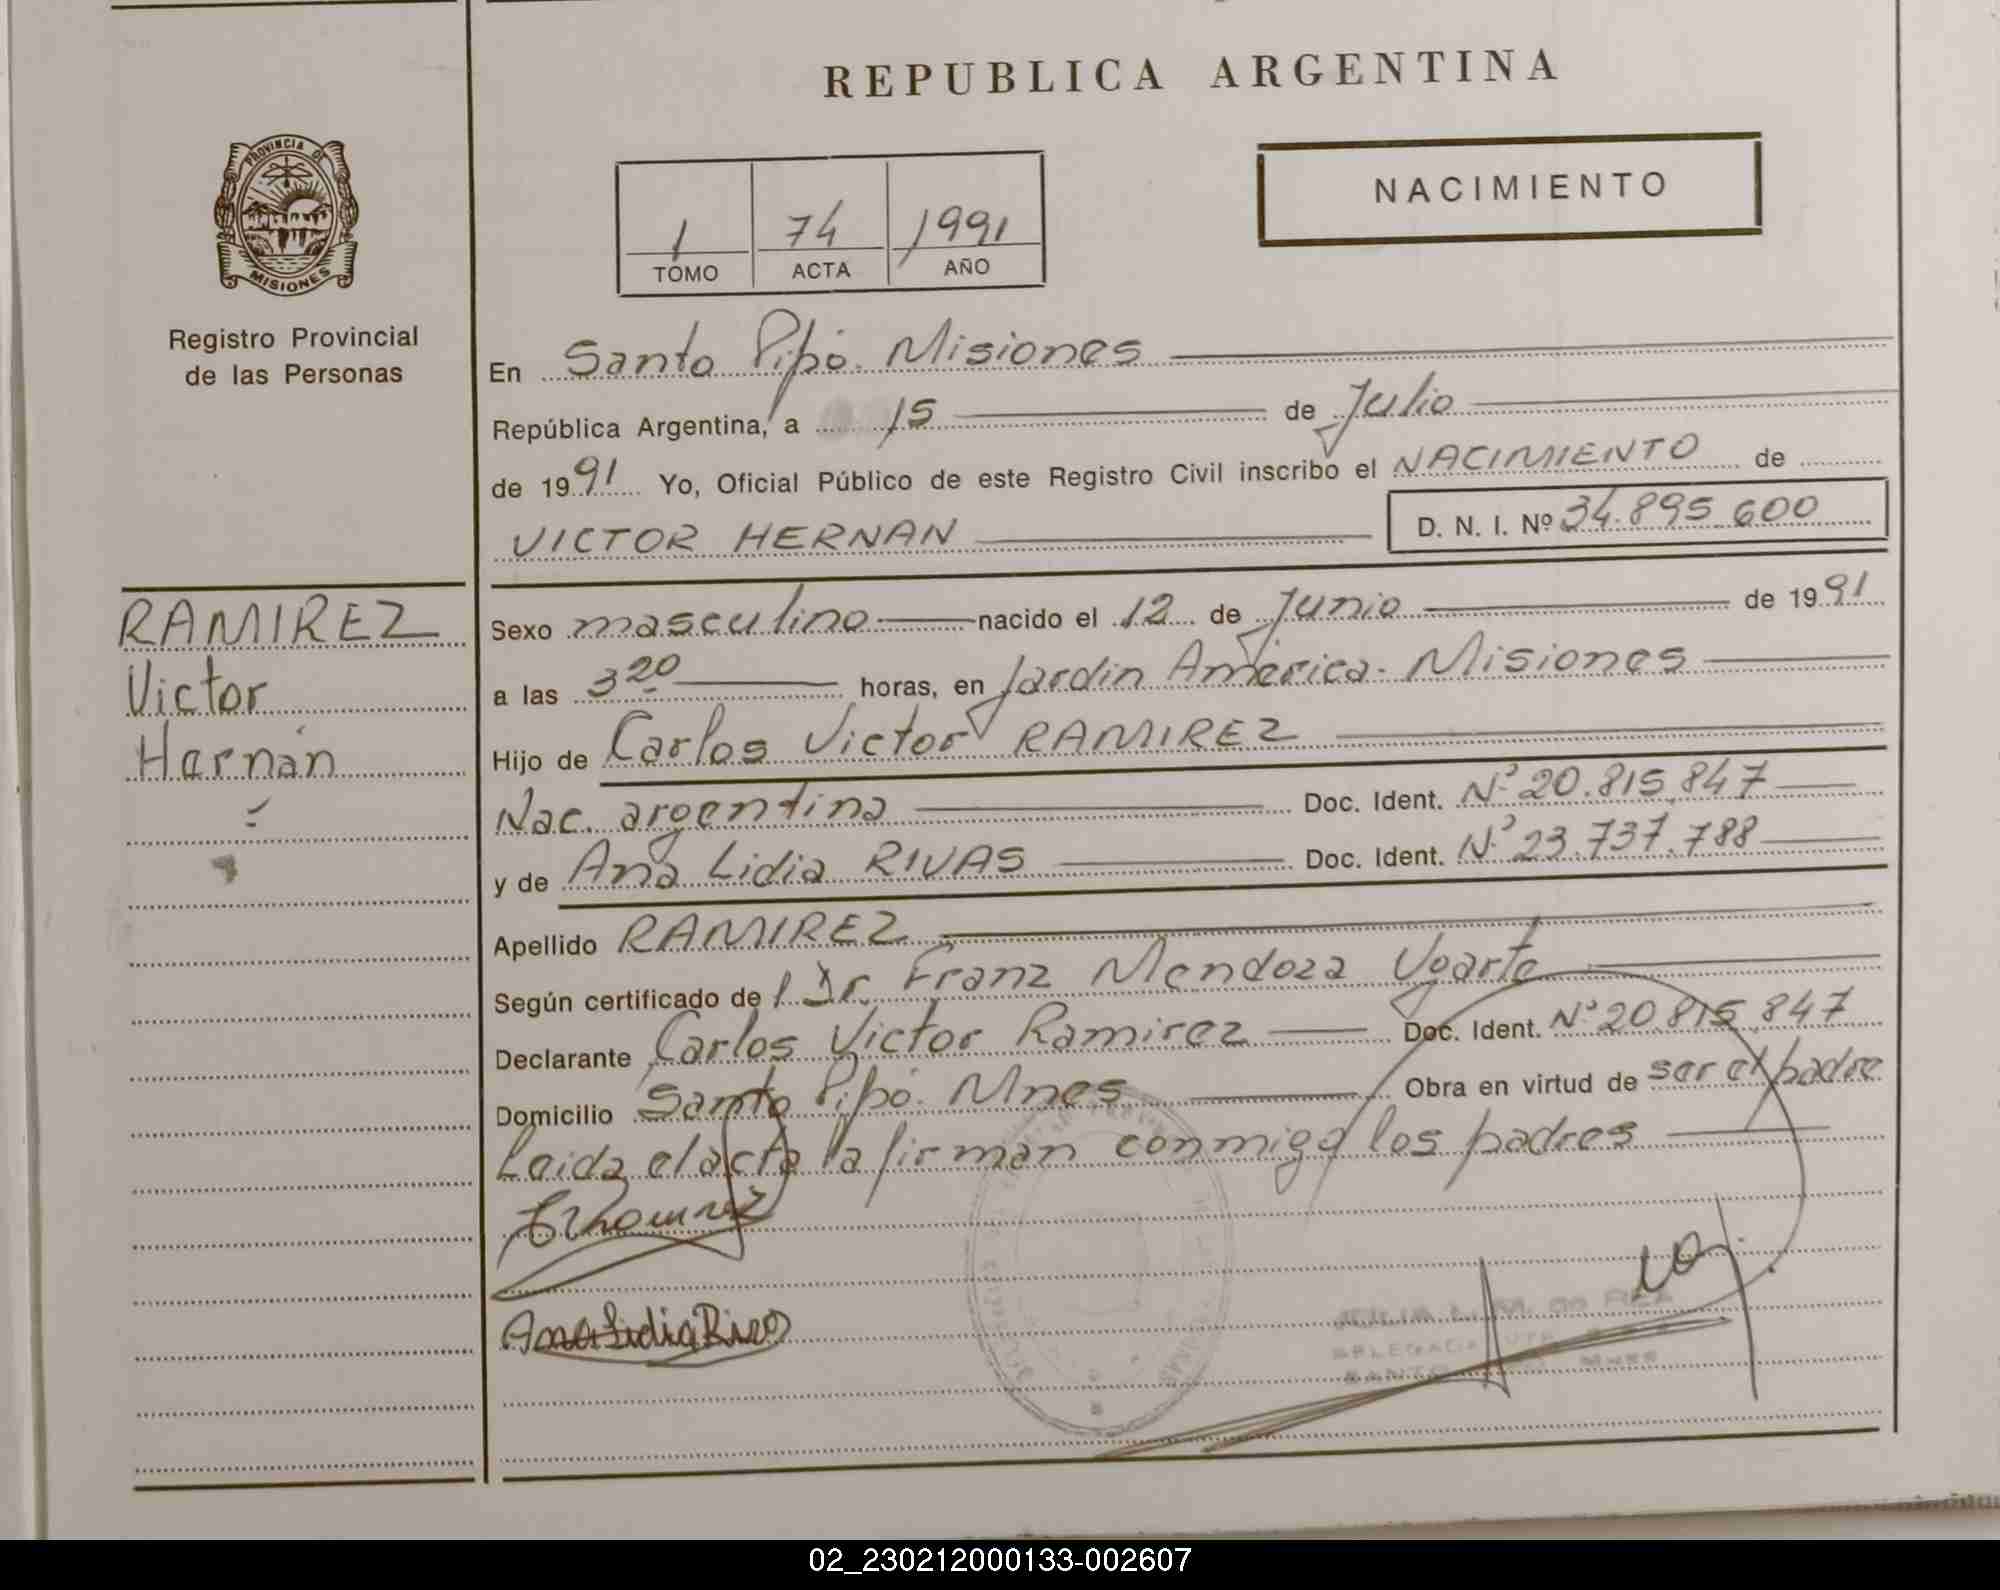 REPUBLICA ARGENTINA
PROVINCIA DE
MISIONES
Registro Provincial
de las Personas
1 74 1991
TOMO ACTA AÑO
NACIMIENTO
En Santo Pipó. Misiones
República Argentina, a 15 de Julio
de 1991 Yo, Oficial Público de este Registro Civil inscribo el NACIMIENTO de
VICTOR HERNAN D. N. I. Nº 34.895.600
RAMIREZ
Victor
Hernán
Sexo masculino nacido el 12 de Junio de 1991
a las 3 20 horas, en Jardin América. Misiones
Hijo de Carlos Victor RAMIREZ
Nac. argentina Doc. Ident. Nº 20.815.847
y de Ana Lidia RIVAS Doc. Ident. Nº 23.737.788
Apellido RAMIREZ
Según certificado de l Dr. Franz Mendoza Ugarte
Declarante Carlos Victor Ramirez Doc. Ident. Nº 20.815.847
Domicilio Santo Pipó. Mnes Obra en virtud de ser el padre
Leida el acta la firman conmigo los padres
Ana Lidia
SANTO Mnes
02_230212000133-002607